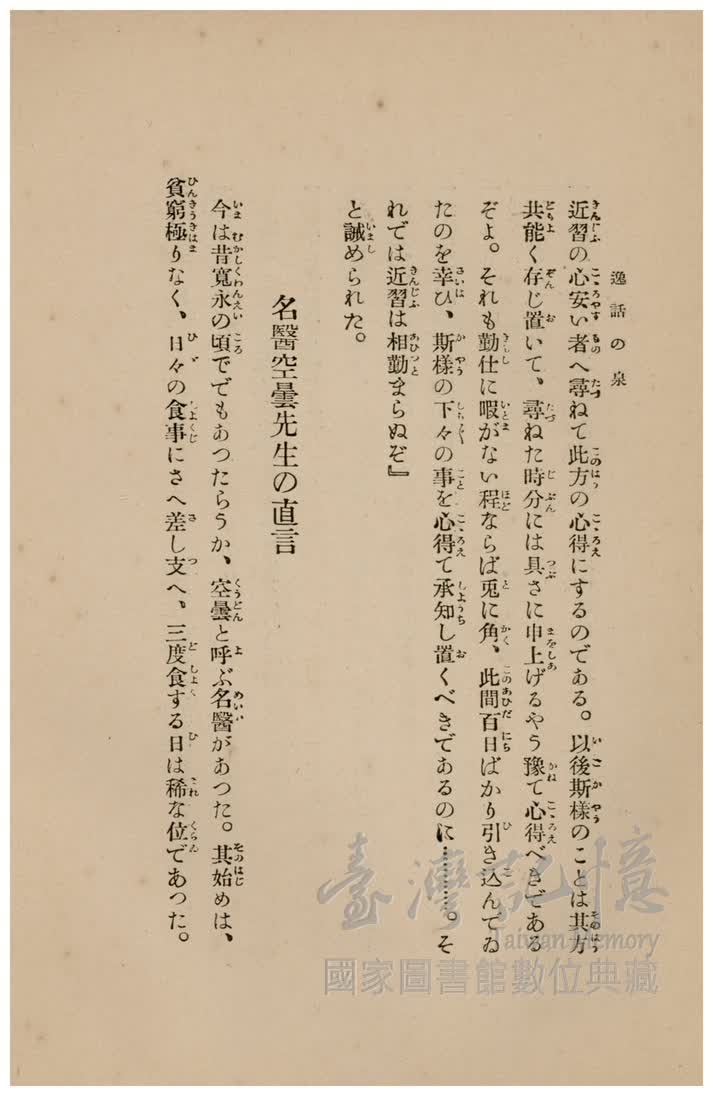 逸話の泉
近習の心安い者へ尋ねて此方の心得にするのである。以後斯樣のことは其方
共能く存じ置いて、尋ねた時分には具さに申上げるやう豫て心得べきである
ぞよ。それも勤仕に暇がない程ならば兎に角、此間百日ばかり引き込んでゐ
たのを幸ひ、斯樣の下々の事を心得て承知し置くべきであるのに…………。そ
れでは近習は相勤まらぬぞ』
と誡められた。
名醫空曇先生の直言
今は昔寬永の頃ででもあつたらうか、空曇と呼ぶ名醫があつた。其始めは、
貧窮極りなく、日々の食事にさへ差し支へ、三度食する日は稀な位であつた。
臺灣記憶
Taiwan Memory
國家圖書館數位典藏